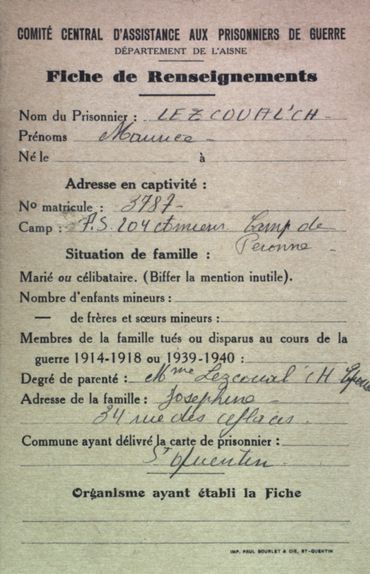 COMITÉ CENTRAL D'ASSISTANCE AUX PRISONNIERS DE GUERRE
DÉPARTEMENT DE L'AISNE
Fiche de Renseignements
Nom du Prisonnier : LEZCOUAL'CH -
Prénoms Maurice -
Né le à
Adresse en captivité :
No matricule : 3787 -
Camp : F.S. 204 Amiens Camp de
Peronne -
Situation de famille :
Marié ou célibataire. (Biffer la mention inutile).
Nombre d'enfants mineurs :
— de frères et sœurs mineurs :
Membres de la famille tués ou disparus au cours de la
guerre 1914-1918 ou 1939-1940 :
Degré de parenté : Mme Lezcoual'CH Epouse
Adresse de la famille : Josephine -
34 rue des Glacis.
Commune ayant délivré la carte de prisonnier :
St Quentin.
Organisme ayant établi la Fiche
IMP. PAUL BOURLET & CIE, ST-QUENTIN